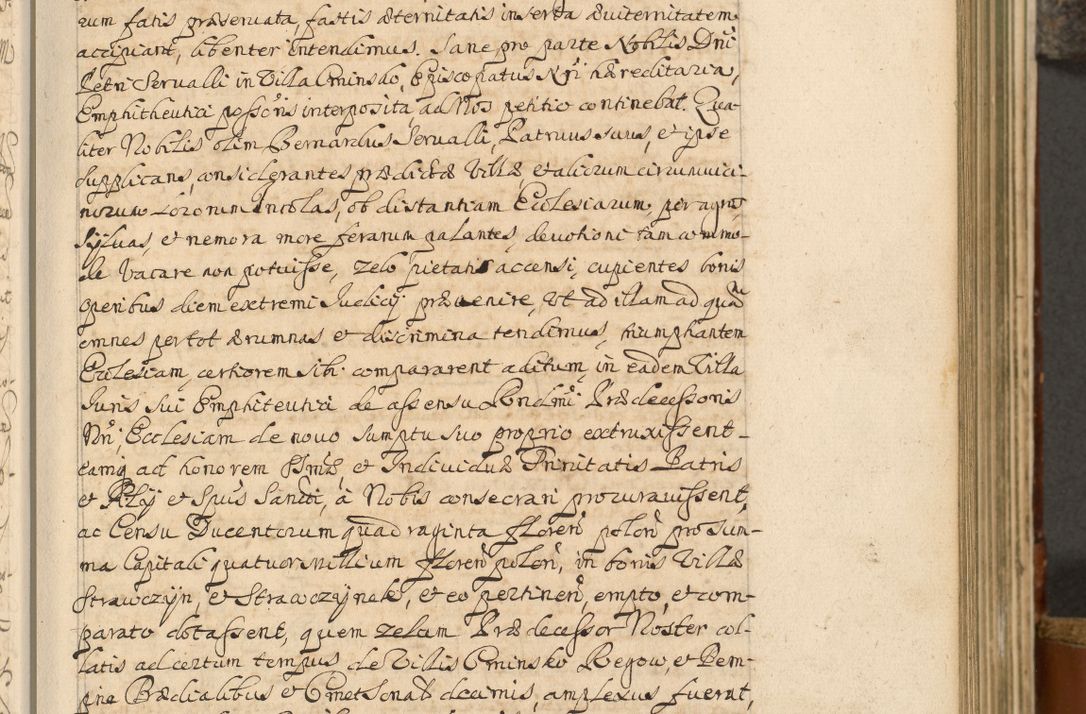 rum fatis præseruata, fastis æternitatis inserta æuiternitatem
accipiant, libenter intendimus. Sane pro parte Nobilis Dni
Petri Serualli in Villa Cminsko, Episcopatus Nri hæreditaria,
Emphitheutici possoris interposita, ad Nos petitio continebat. Qua-
liter Nobilis olim Bernardus Serualli, Patruus suus, et ipse
supplicans, considerantes prædictæ Villæ, et aliorum circumuici-
norum Locorum Incolas, ob distantiam Ecclesiarum, per agros
Syluas, et nemora more ferarum palantes, deuotioni tam commo-
de Vacare non potuisse, zelo pietatis accensi, cupientes bonis
operibus diem extremi Iudicij præuenire, Vt ad illam ad quam
omnes per tot ærumnas et discrimina tendimus, triumphantem
Ecclesiam, certiorem sibi compararent aditum, in eadem Villa
Iuris sui Emphiteutici de assensu Rendmi Prædecessoris
Nri, Ecclesiam de nouo sumptu suo proprio extruxissent
eamq ad honorem SSmæ, et Indiuiduæ Trinitatis Patris
et Filij et Spus Sancti, à Nobis consecrari procurauissent,
ac Censu Ducentorum quadraginta floren polon pro sum-
ma Capitali quatuor Millium floren polon, in bonis Villæ
Strawczyn, et Strawczynek, et eo pertinen, empto, et com-
parato dotassent, quem zelum Prædecessor Noster col-
latis ad certum tempus de Villis Cminsko Regow, et Pem-
pne Prædialibus et Cmetsonal decimis, amplexus fuerat,